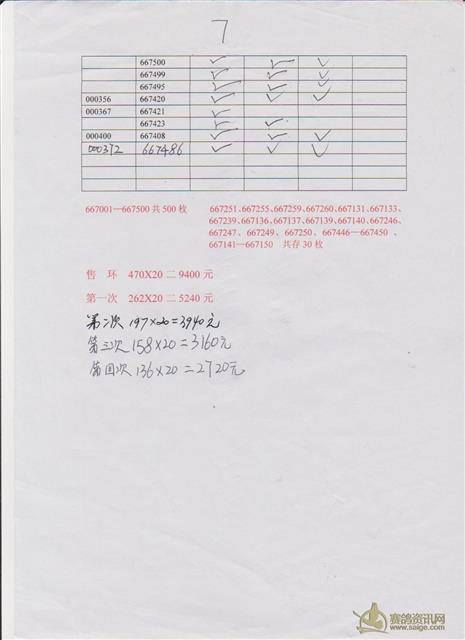 7
667500 ✓ ✓ ✓
667499 ✓ ✓ ✓
667495 ✓ ✓ ✓
000356 667420 ✓ ✓ ✓
000367 667421 ✓
667423 ✓ ✓
000400 667408 ✓ ✓ ✓
000372 667486 ✓ ✓ ✓
667001—667500共500枚
667251、667255、667259、667260、667131、667133、
667239、667136、667137、667139、667140、667246、
667247、667249、667250、667446—667450 、
667141—667150 共存30枚
售 环 470X20 二 9400 元
第一次 262X20 二 5240 元
第二次 197×20=3940元
第三次 158×20=3160元
第四次 136×20=2720元
赛鸽资讯网
www.saige.com